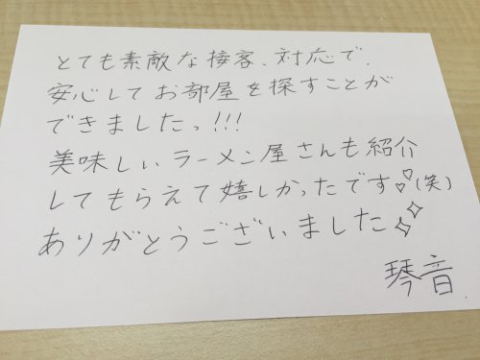 とても素敵な接客、対応で、
安心してお部屋を探すことが
できましたっ!!!
美味しいラーメン屋さんも紹介
してもらえて嬉しかったです♡(笑)
ありがとうございました✨
琴音